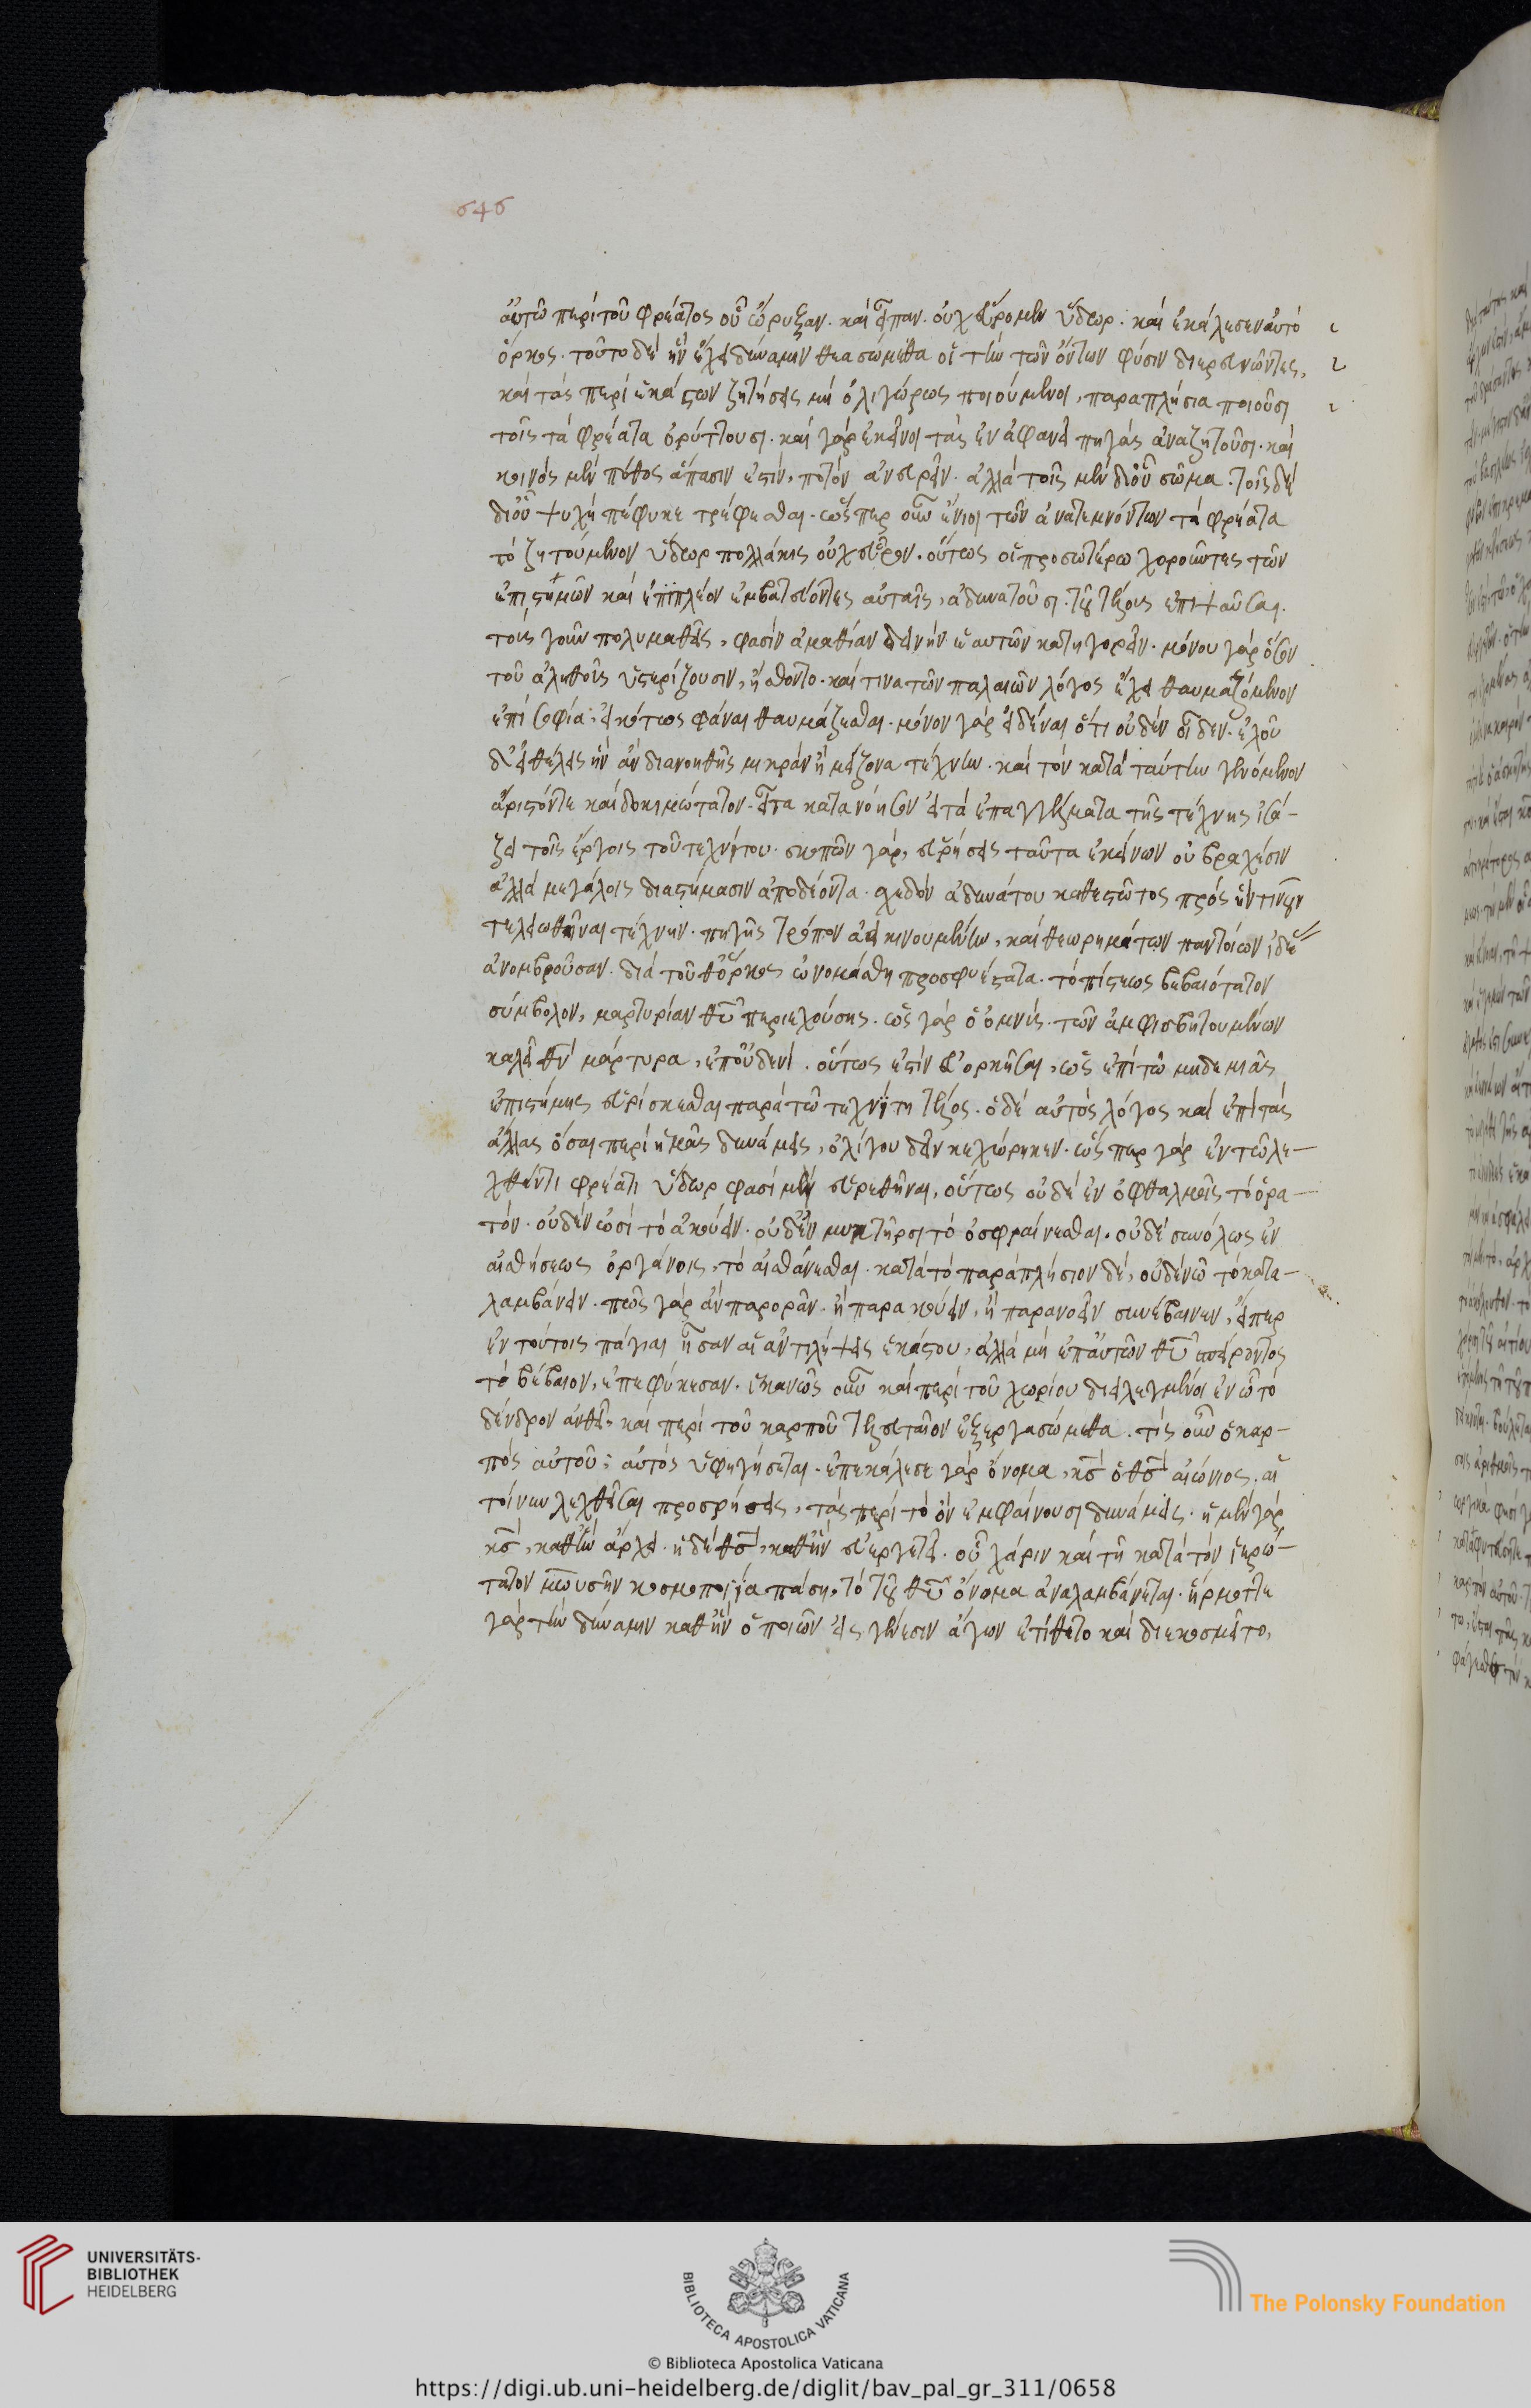 646
αὐτῶ περὶ τοῦ φρέατος οὗ ὤρυξαν. καὶ εἶπαν. οὐχ εὕρομεν ὕδωρ. καὶ ἐκάλεσεν αὐτὸ
ὅρκος. τοῦτο δὲ ἣν ἔχει δύναμιν θεασώμεθα οἱ τὴν τῶν ὄντων φύσιν διερευνῶντες,
καὶ τὰς περὶ ἑκάστων ζητήσεις μὴ ὀλιγώρως ποιούμενοι, παραπλήσια ποιοῦσι
τοῖς τὰ φρέατα ὀρύττουσι. καὶ γὰρ ἐκεῖνοι τὰς ἐν ἀφανεῖ πηγὰς ἀναζητοῦσι. καὶ
κοινὸς μὲν πόθος ἅπασιν ἐστὶν, ποτὸν ἀνευρεῖν. ἀλλὰ τοῖς μὲν δι' οὗ σῶμα. τοῖς δὲ
δι' οὗ ψυχὴ πέφυκε τρέφεσθαι. ὥσπερ οὖν ἔνιοι τῶν ἀνατεμνόντων τὰ φρέατα
τὸ ζητούμενον ὕδωρ πολλάκις οὐχ εὗρον. οὕτως οἱ προσωτέρω χωροῦντες τῶν
ἐπιστημῶν καὶ ἐπιπλέον ἐμβατεύοντες αὐταῖς, ἀδυνατοῦσι τοῦ τέλους ἐπιψαῦσαι.
τοὺς γοῦν πολυμαθεῖς, φασὶν ἀμαθίαν δεινὴν ἑαυτῶν κατηγορεῖν. μόνου γὰρ ὅσον
τοῦ ἀληθοῦς ὑστερίζουσιν, ἤσθοντο. καί τινα τῶν παλαιῶν λόγος ἔχει θαυμαζόμενον
ἐπὶ σοφία. εἰκότως φάναι θαυμάζεσθαι. μόνον γὰρ εἰδέναι ὅτι οὐδὲν οἶδεν. ἑλοῦ
δ' εἰ θέλεις ἣν ἂν διανοηθῆς μικρὰν ἢ μείζονα τέχνην. καὶ τὸν κατὰ ταύτην γενόμενον
ἄριστόν τε καὶ δοκιμώτατον. εἶτα κατανόησον εἰ τὰ ἐπαγγέλματα τῆς τέχνης ἰσά-
ζει τοῖς ἔργοις τοῦ τεχνίτου. σκοπῶν γὰρ, εὑρήσεις ταῦτα ἐκείνων οὐ βραχέσιν
ἀλλὰ μεγάλοις διαστήμασιν ἀποδέοντα. σχεδὸν ἀδυνάτου καθεστῶτος πρὸς ἡντινοῦν
τελειωθῆναι τέχνην. πηγῆς τρόπον ἀεὶ κινουμένην, καὶ θεωρημάτων παντοίων ἰδέας
ἀνομβροῦσαν. διὰ τοῦθ' ὅρκος ὠνομάσθη προσφυέστατα. τὸ πίστεως βεβαιότατον
σύμβολον, μαρτυρίαν θῦ περιεχούσης. ὡς γὰρ ὁ ὀμνὺς. τῶν ἀμφισβητουμένων
καλεῖ θν μάρτυρα, ἐπ' οὐδενὶ. οὕτως ἐστὶν εὐορκῆσαι, ὡς ἐπὶ τῶ μηδεμιᾶς
ἐπιστήμης εὑρίσκεσθαι παρὰ τῶ τεχνίτη τέλος. ὁ δὲ αὐτὸς λόγος καὶ ἐπὶ τὰς
ἄλλας ὅσαι περὶ ἡμᾶς δυνάμεις, ὀλίγου δεῖν κεχώρηκεν. ὥσπερ γὰρ ἐν τῶ λε-
χθέντι φρέατι ὕδωρ φασὶ μὴ εὑρεθῆναι, οὕτως οὐδὲ ἐν ὀφθαλμοῖς τὸ ὁρα-
τόν. οὐδὲν ὠσὶ τὸ ἀκούειν. οὐδ' ἐν μυκτῆρσι τὸ ὀσφραίνεσθαι. οὐδὲ συνόλως ἐν
αἰσθήσεως ὀργάνοις, τὸ αἰσθάνεσθαι. κατὰ τὸ παραπλήσιον δὲ, οὐδὲ νῶ τὸ κατα-
λαμβάνειν. πῶς γὰρ ἂν παρορᾶν. ἢ παρακούειν, ἢ παρανοεῖν συνέβαινεν, εἴπερ
ἐν τούτοις πάγιαι ἦσαν αἱ ἀντιλήψεις ἑκάστου, ἀλλὰ μὴ ἐπ' αὐτῶν θῦ σπείροντος
τὸ βέβαιον, ἐπεφύκεσαν. ἱκανῶς οὖν καὶ περὶ τοῦ χωρίου διειλεγμένοι ἐν ὧ τὸ
δένδρον ἀνθεῖ, καὶ περὶ τοῦ καρποῦ τελευταῖον ἐξεργασώμεθα. τίς οὖν ὁ καρ-
πὸς αὐτοῦ; αὐτὸς ὑφηγήσεται. ἐπεκάλεσε γὰρ ὄνομα, κς ὁ θς αἰώνιος. αἱ
τοίνυν λεχθεῖσαι προσρήσεις, τὰς περὶ τὸ ὂν ἐμφαίνουσι δυνάμεις. ἡ μὲν γὰρ
κς, καθ' ἣν ἄρχει. ἡ δὲ θς, καθ' ἣν εὐεργετεῖ. οὗ χάριν καὶ τῆ κατὰ τὸν ἱερώ-
τατον μωυσῆν κοσμοποιΐα πάση, τὸ τοῦ θῦ ὄνομα ἀναλαμβάνεται. ἥρμοττε
γὰρ τὴν δύναμιν καθ' ἣν ὁ ποιῶν εἰς γένεσιν ἄγων ἐτίθετο καὶ διεκοσμεῖτο,
UNIVERSITÄTS-
BIBLIOTHEK
HEIDELBERG
BIBLIOTECA APOSTOLICA VATICANA
The Polonsky Foundation
© Biblioteca Apostolica Vaticana
https://digi.ub.uni-heidelberg.de/diglit/bav_pal_gr_311/0658